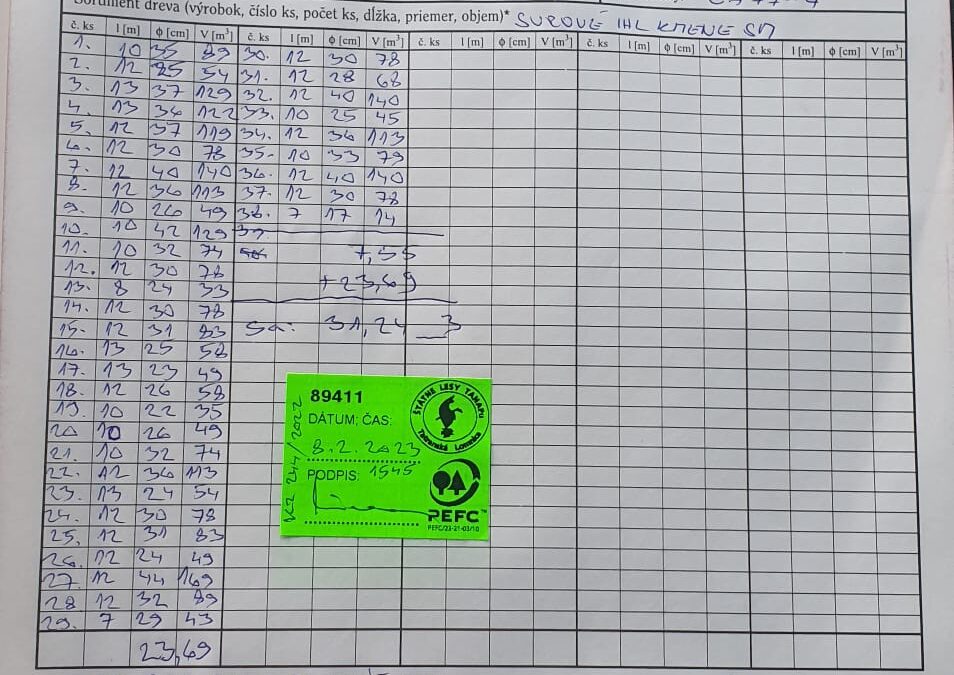 Sortiment dreva (výrobok, číslo ks, počet ks, dĺžka, priemer, objem)* SUROVÉ IHL KMENE SM
č. ks l [m] ϕ [cm] V [m³] č. ks l [m] ϕ [cm] V [m³] č. ks l [m] ϕ [cm] V [m³] č. ks l [m] ϕ [cm] V [m³] č. ks l [m] ϕ [cm] V [m³]
1. 10 35 89 30. 12 30 78
2. 12 25 54 31. 12 28 68
3. 13 37 129 32. 12 40 140
4. 13 36 122 33. 10 25 45
5. 12 37 119 34. 12 36 113
6. 12 30 78 35. 10 33 79
7. 12 40 140 36. 12 40 140
8. 12 36 113 37. 12 30 78
9. 10 26 49 38. 7 17 14
10. 10 42 129 39
11. 10 32 74 7,55
12. 12 30 78
13. 8 24 33 +23,69
14. 12 30 78
15. 12 31 83 Sa: 31,24 3
16. 13 25 58
17. 13 23 49
18. 12 26 58
19. 10 22 35
20 10 26 49
21. 10 32 74
22. 12 36 113
23. 13 24 54
24. 12 30 78
25. 12 31 83
26. 12 24 49
27. 12 44 169
28 12 32 89
29. 7 29 43
23,69
89411
DÁTUM; ČAS:
8.2.2023
PODPIS: 1545
KZ 244/2022
ŠTÁTNE LESY TANAPU
Tatranská Lomnica
PEFC™
PEFC/23-21-03/10